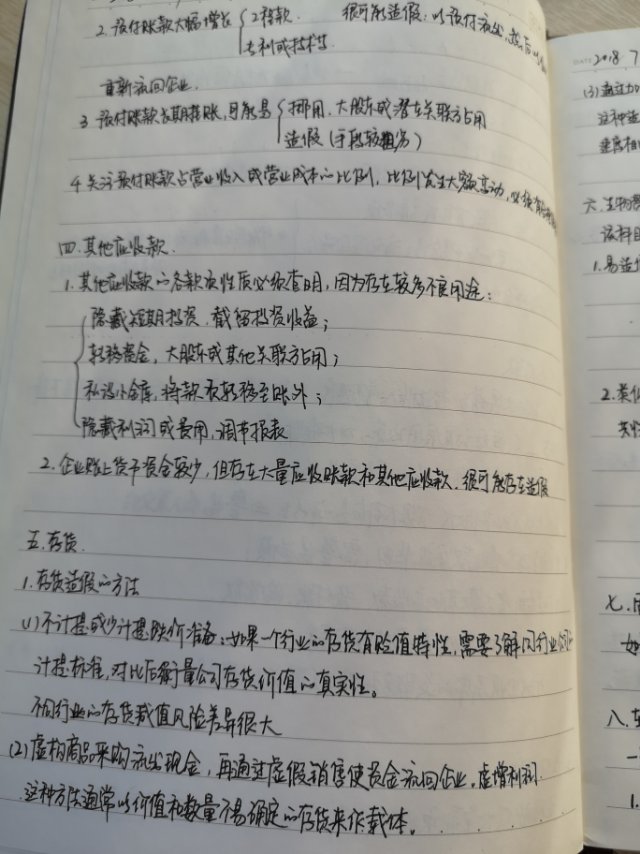 2. 预付账款大幅增长 { 工程款 很可能造假：以预付流出，然后以
专利或技术等
重新流回企业.
3 预付账款长期挂账，可能是 { 挪用，大股东或潜在关联方占用
造假 (手段较拙劣)
4 关注预付账款占营业收入或营业成本的比例，比例发生大额变动，必须
四. 其他应收款.
1. 其他应收款的各款项性质必须查明，因为存在较多不良用途：
隐藏短期投资，截留投资收益；
转移资金，大股东或其他关联方占用；
私设小金库，将款项转移至账外；
隐藏利润或费用，调节报表
2. 企业账上货币资金较少，但存在大量应收账款和其他应收款，很可能存在造假
五. 存货.
1. 存货造假的方法
(1) 不计提或少计提跌价准备：如果一个行业的存货有贬值特性，需要了解同行业公司
计提标准，对比后衡量公司存货价值的真实性。
不同行业的存货减值风险差异很大
(2) 虚构商品采购流出现金，再通过虚假销售使资金流回企业，虚增利润.
这种方法通常以价值和数量不易确定的存货来作载体。
DATE 2018.7
(3)
这种造
六. 生物资
该科目
1. 易造
2. 类
七.
如
八.
一
1.